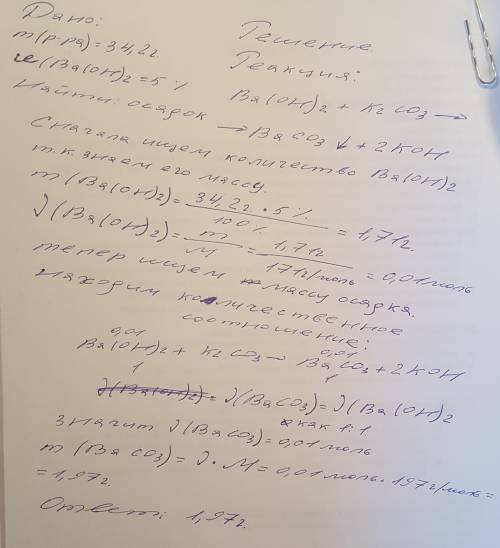 Дано:
m(р-ра) = 34,2г.
ω(Ba(OH)2 = 5 %
Найти: осадок
Решение.
Реакция:
Ba(OH)2 + K2CO3 →
→ BaCO3 ↓ + 2KOH
Сначала ищем количество Ba(OH)2
т.к. знаем его массу.
m(Ba(OH)2) = 34,2г • 5 % / 100% = 1,71г.
ν(Ba(OH)2) = m / M = 1,71г / 171г/моль = 0,01моль
тепер ищем массу осадка.
Находим количественное
соотношение:
0,01 0,01
Ba(OH)2 + K2CO3 → BaCO3 + 2KOH
1 1
ν(Ba(OH)2) = ν(BaCO3) = ν(Ba(OH)2
как 1:1
значит ν(BaCO3) = 0,01моль
m(BaCO3) = ν • M = 0,01моль • 197г/моль =
= 1,97г.
Ответ: 1,97г.